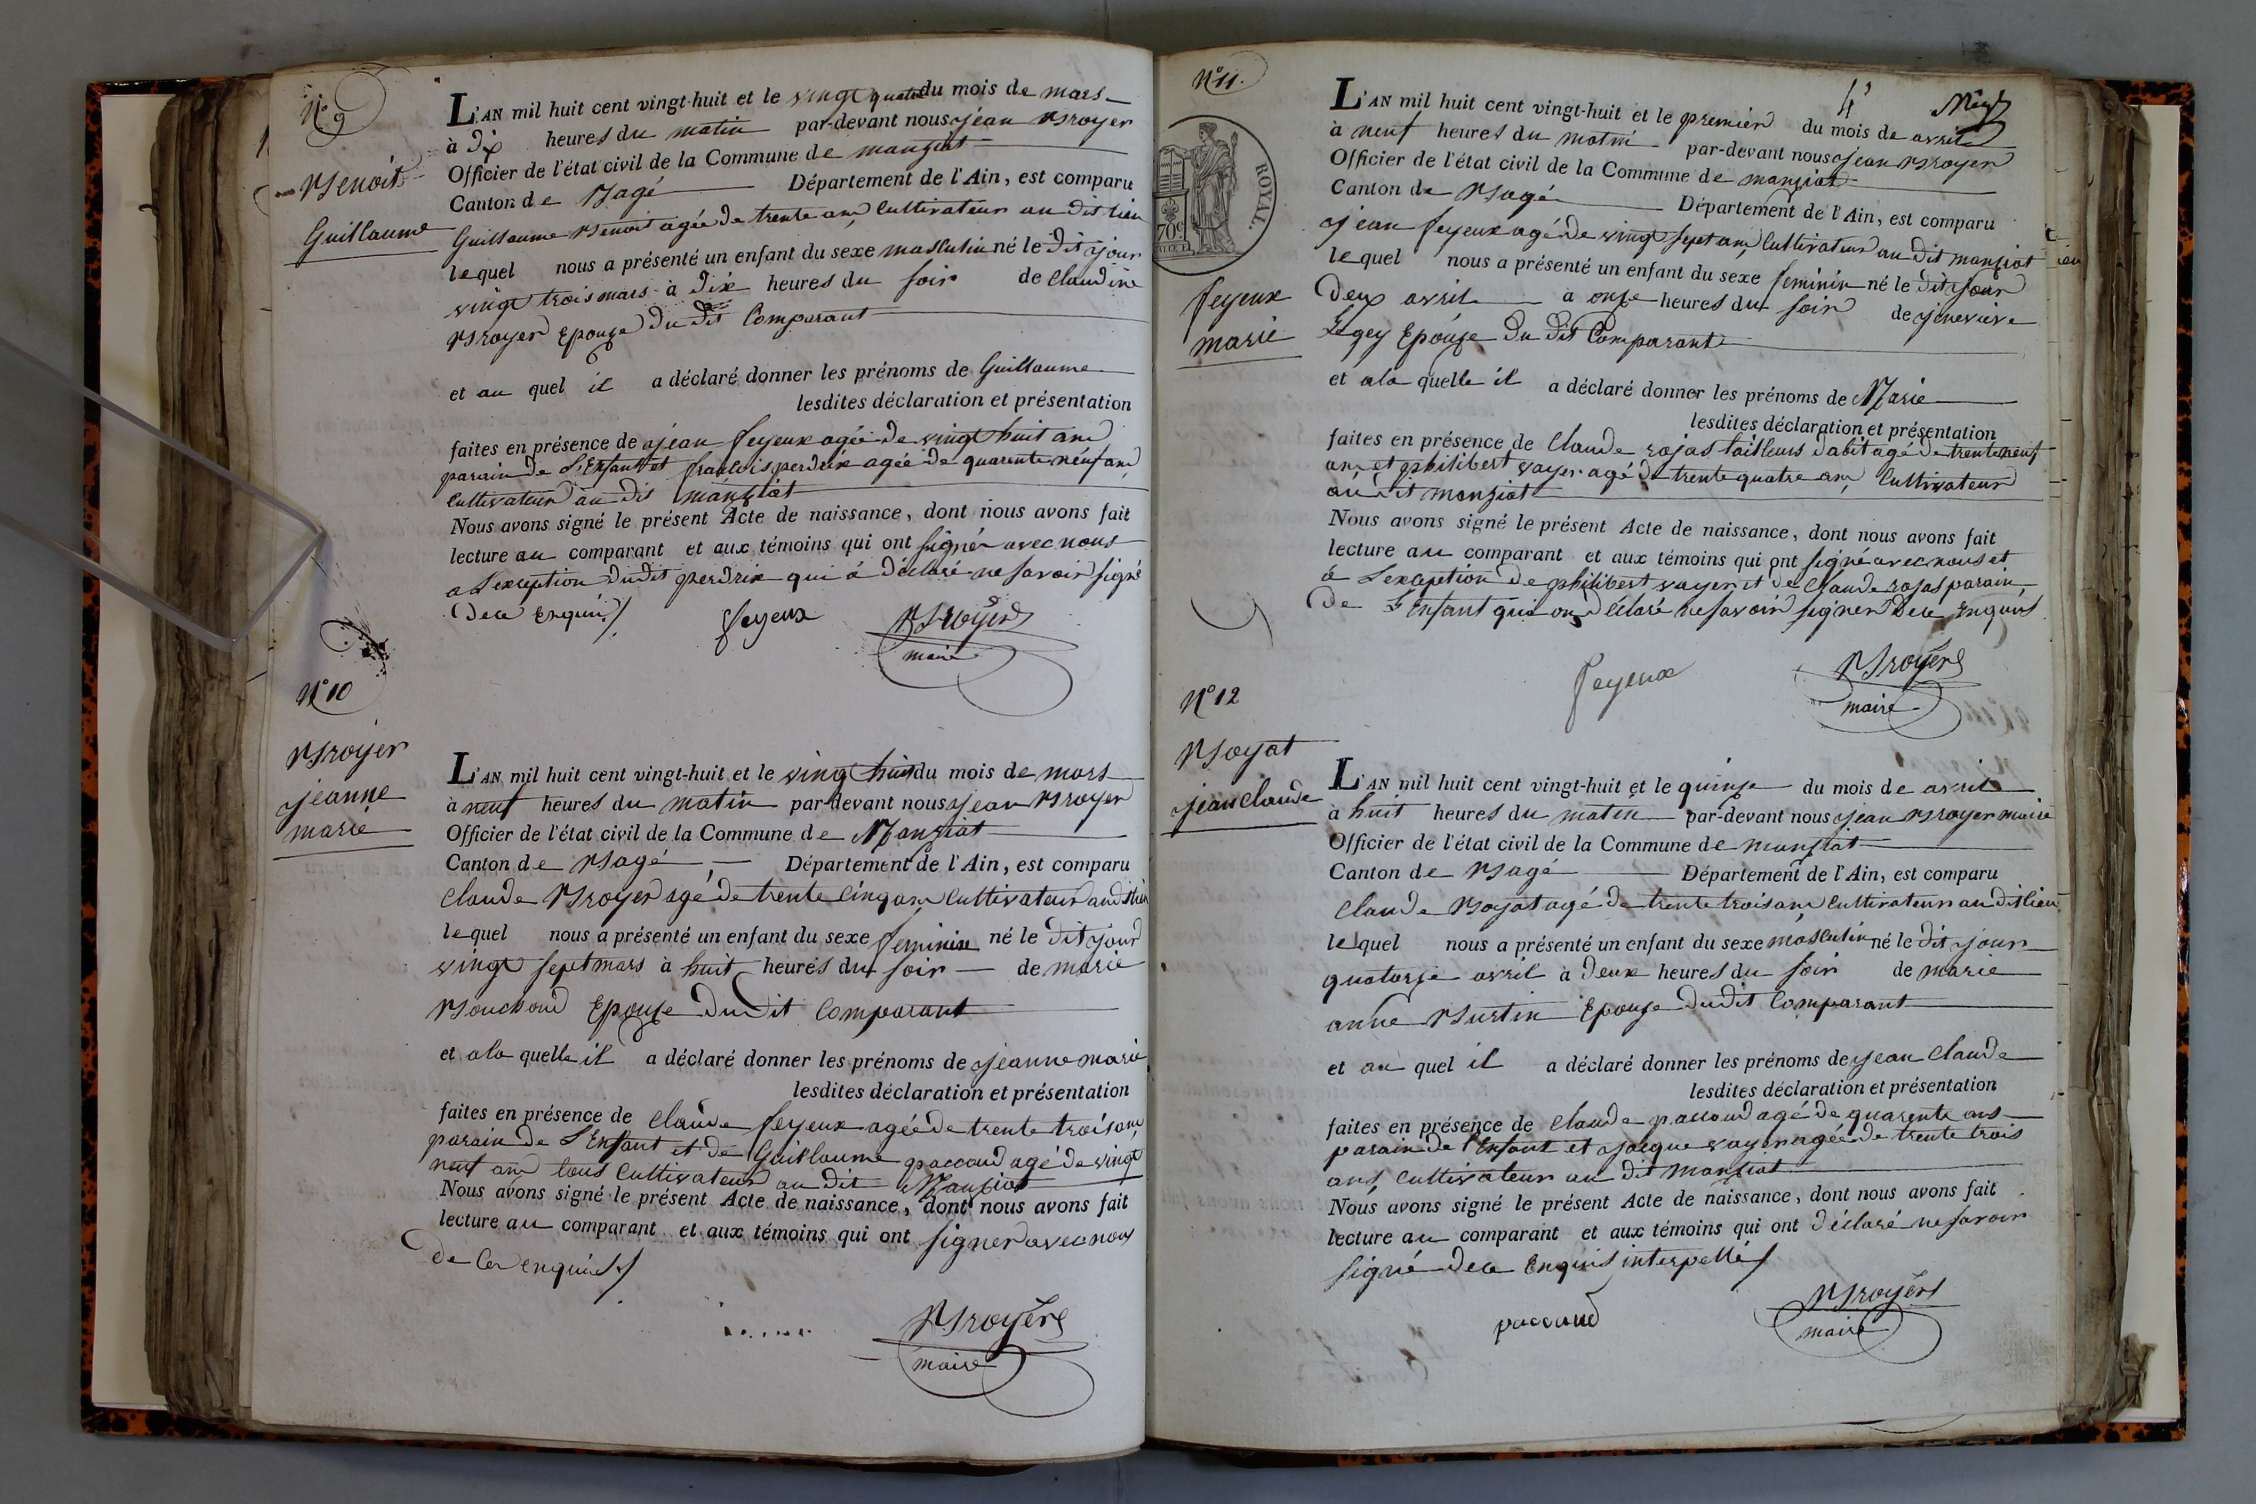 N° 9
Benoit
Guillaume
L'AN mil huit cent vingt-huit et le vingt quatre du mois de mars
à dix heures du matin par-devant nous jean Broyer
Officier de l'état civil de la Commune de manziat
Canton de Bagé Département de l'Ain, est comparu
Guillaume Benoit agée de trente ans Cultivateur au dit lieu
lequel nous a présenté un enfant du sexe masculin né le dit jour
vingt trois mars à dix heures du soir de Claudine
Broyer Epouse du dit Comparant
et au quel il a déclaré donner les prénoms de Guillaume
lesdites déclaration et présentation
faites en présence de jean feyeux agée de vingt huit ans
parain de L'Enfant et francois perdrix agée de quarente neuf ans
Cultivateur au dit manziat
Nous avons signé le présent Acte de naissance, dont nous avons fait
lecture au comparant et aux témoins qui ont signer avec nous
a L'exception dudit perdrix qui à déclaré ne savoir signé
de ce Enquis
feyeux Broyer
maire
N° 10
Broyer
jeanne
marie
L'AN mil huit cent vingt-huit et le vingt huit du mois de mars
à neuf heures du matin par-devant nous jean Broyer
Officier de l'état civil de la Commune de Manziat
Canton de Bagé Département de l'Ain, est comparu
Claude Broyer agé de trente Cinq ans Cultivateur au dit lieu
lequel nous a présenté un enfant du sexe feminin né le dit jour
vingt sept mars à huit heures du soir de marie
Bouchoud Epouse du dit Comparant
et a la quelle il a déclaré donner les prénoms de jeanne marie
lesdites déclaration et présentation
faites en présence de Claude feyeux agée de trente trois ans
parain de L'Enfant et de Guillaume paccoud agé de vingt
neuf ans tous Cultivateur au dit Manziat
Nous avons signé le présent Acte de naissance, dont nous avons fait
lecture au comparant et aux témoins qui ont signer avec nous
de Ce enquis
Broyer
maire
N° 11.
4
ROYAL.
70c
feyeux
marie
L'AN mil huit cent vingt-huit et le premier du mois de avril
à neuf heures du matin par-devant nous jean Broyer
Officier de l'état civil de la Commune de manziat
Canton de Bagé Département de l'Ain, est comparu
jean feyeux agé de vingt sept ans Cultivateur au dit manziat
lequel nous a présenté un enfant du sexe feminin né le dit jour
deux avril à onze heures du soir de jenevieve
Epouse du dit Comparant
et a la quelle il a déclaré donner les prénoms de Marie
lesdites déclaration et présentation
faites en présence de Claude rojas tailleurs d'abit agé de trente neuf
ans et philibert vayer agé de trente quatre ans Cultivateur
au dit manziat
Nous avons signé le présent Acte de naissance, dont nous avons fait
lecture au comparant et aux témoins qui ont signé avec nous et
à L'exception de philibert vayer et de Claude rojas parain
de L'Enfant qui on déclaré ne savoir signer de ce Enquis
feyeux Broyer
maire
N° 12
Boyat
jean Claude
L'AN mil huit cent vingt-huit et le quinze du mois de avril
à huit heures du matin par-devant nous jean Broyer maire
Officier de l'état civil de la Commune de manziat
Canton de Bagé Département de l'Ain, est comparu
Claude Boyat agé de trente trois ans Cultivateur au dit lieu
lequel nous a présenté un enfant du sexe masculin né le dit jour
quatorze avril à deux heures du soir de marie
anne Burtin Epouse du dit Comparant
et au quel il a déclaré donner les prénoms de jean Claude
lesdites déclaration et présentation
faites en présence de Claude paccoud agé de quarente ans
parain de l'Enfant et jacque vayer agée de trente trois
ans Cultivateur au dit manziat
Nous avons signé le présent Acte de naissance, dont nous avons fait
lecture au comparant et aux témoins qui ont déclaré ne savoir
signé de ce Enquis interpellé
paccoud Broyer
maire